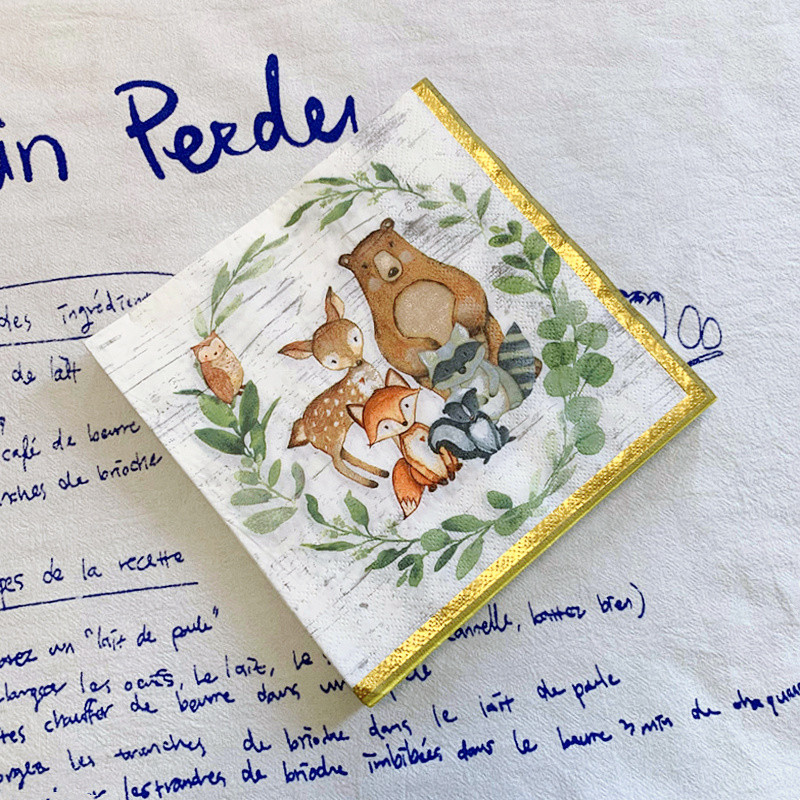 in Perdu
des ingrédien
de lait
café de beurre
nches de brioche
pes de la recette
rez un "lait de poule"
langer les œufs, le lait, le
annelle, battez bien)
tes chauffer de beurre dans un
orgez les tranches de brioche dans le lait de poule
les tranches de brioche imbibées dans le beurre 3 min de chaque